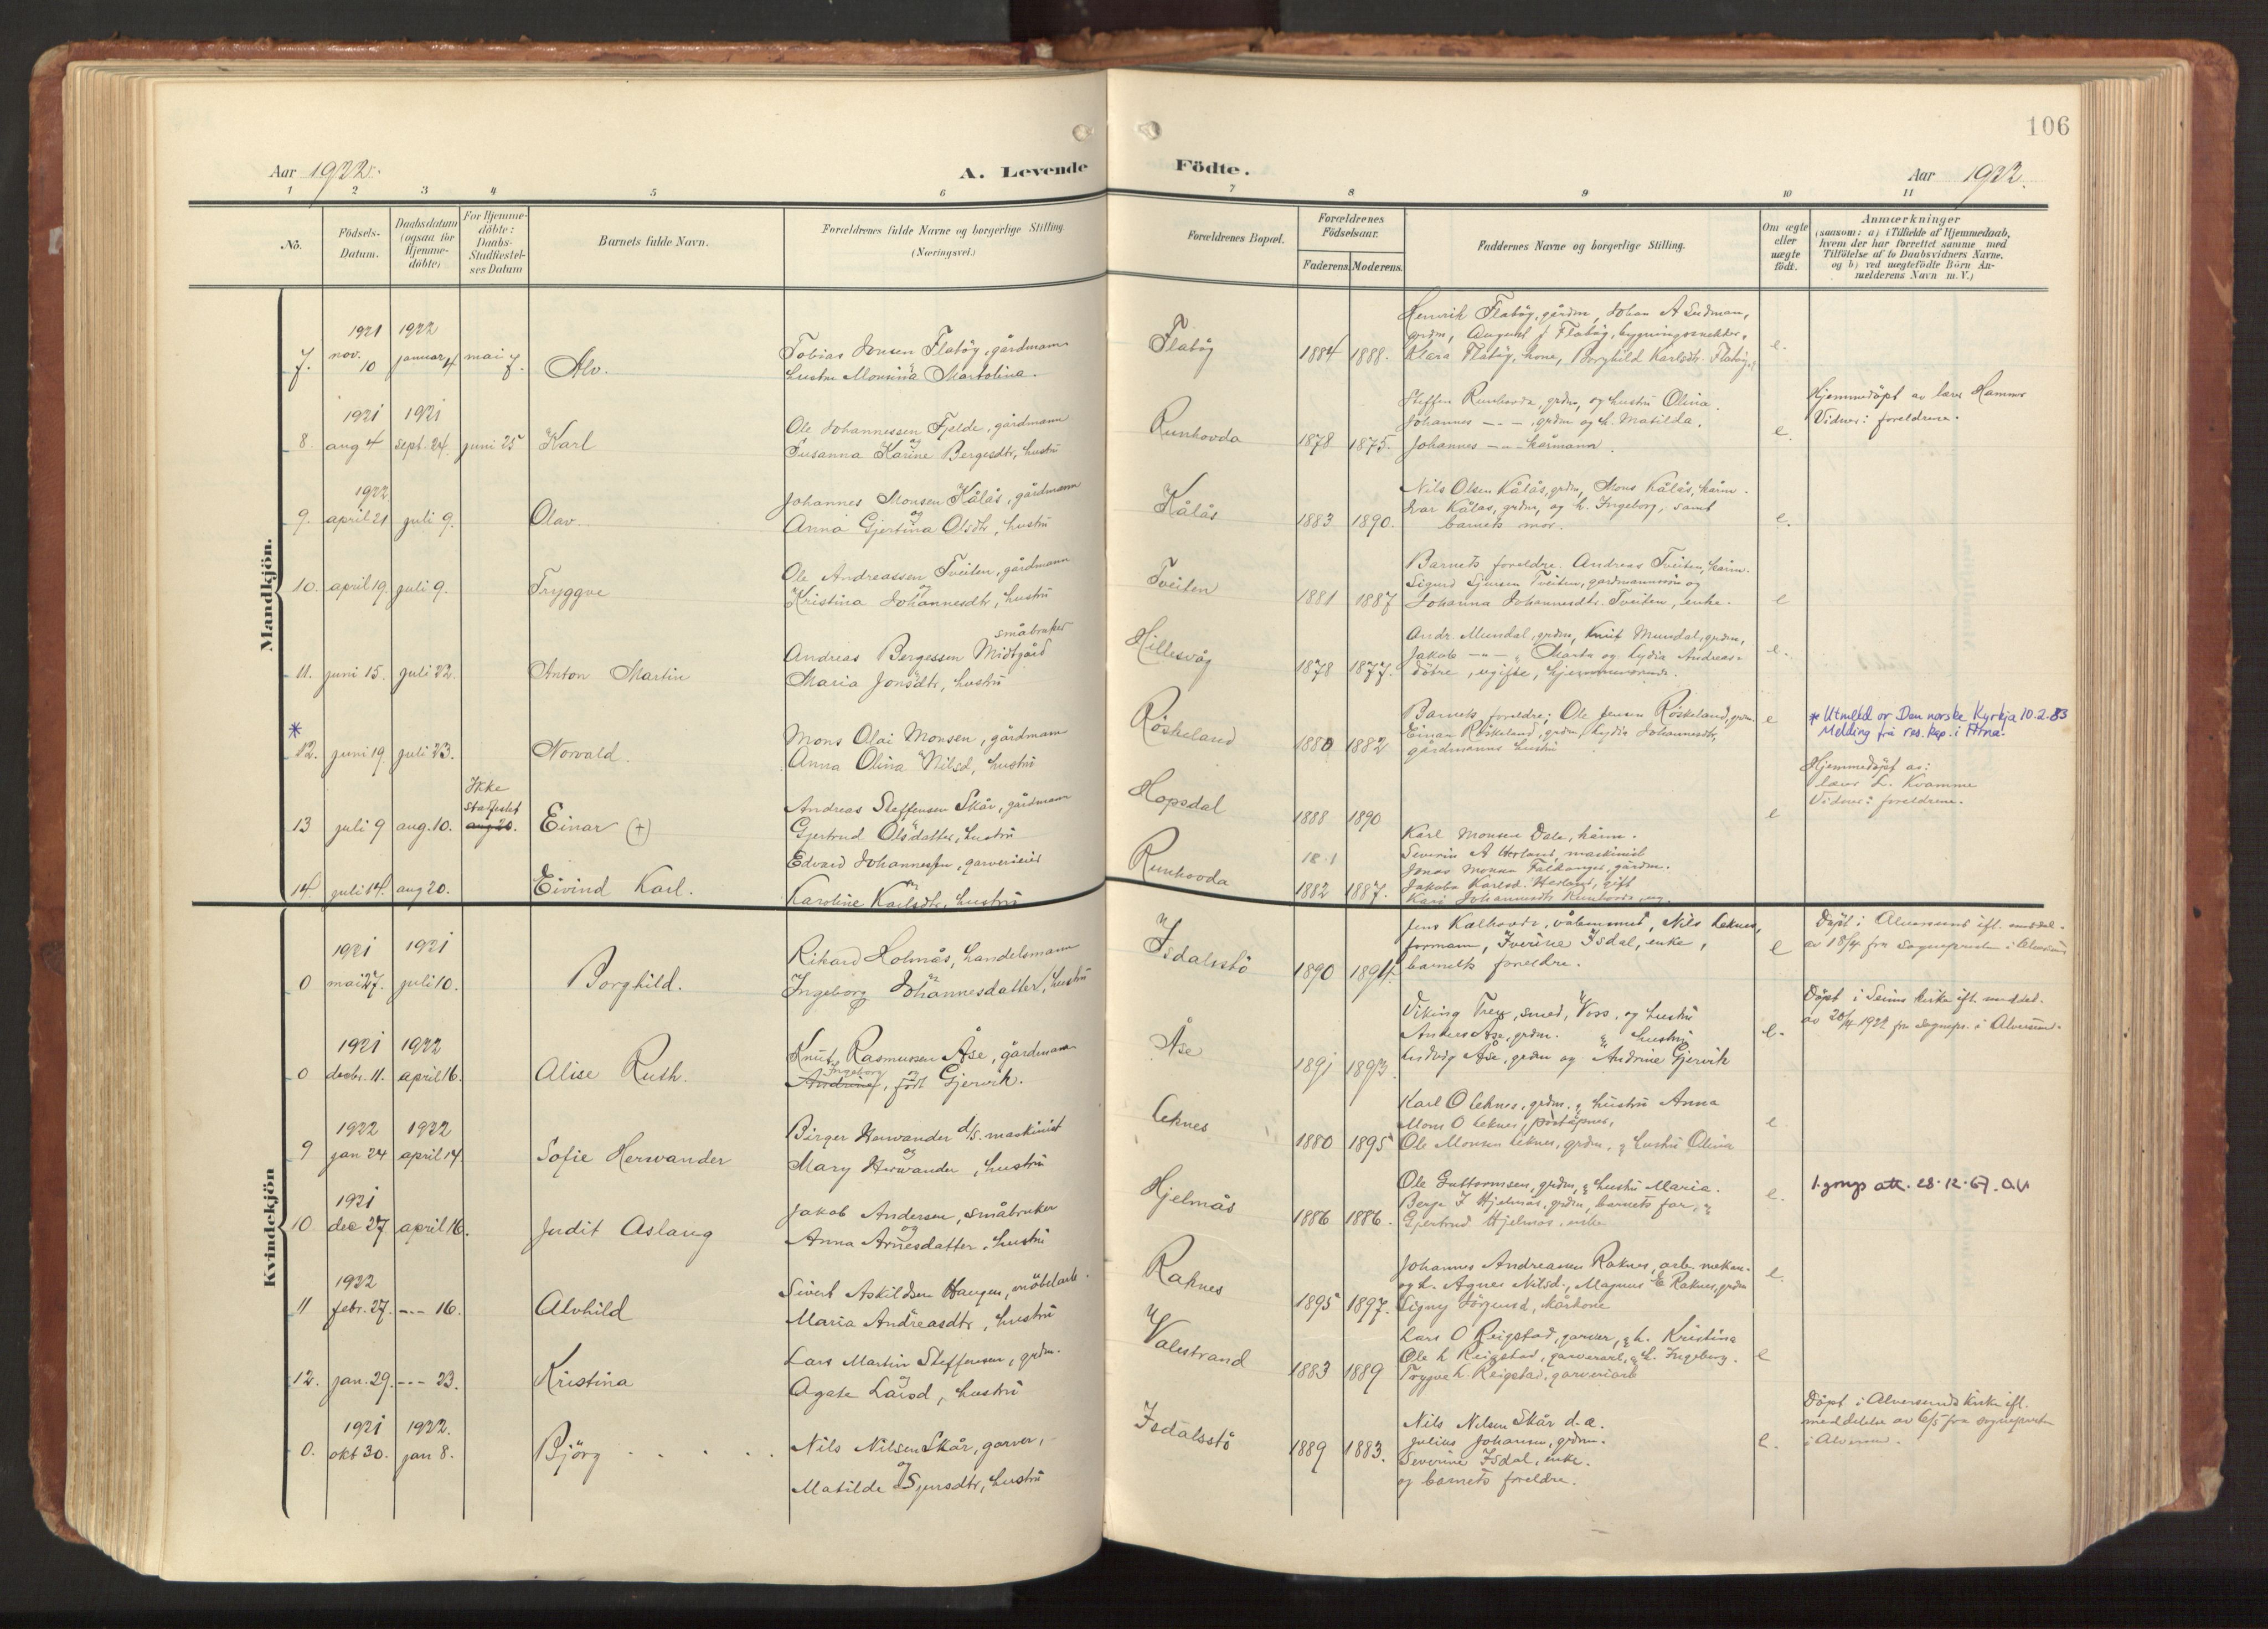 106
Aar 1922.
A. Levende
Födte.
Aar 1922.
1 2 3 4 5 6 7 8 9 10 11
No.
Födsels-
Datum.
Daabsdatum
(ogsaa for
Hjemme-
döbte)
For Hjemme-
döbte:
Daabs-
Stadfæstel-
ses Datum
Barnets fulde Navn.
Forældrenes fulde Navne og borgerlige Stilling
(Næringsvei.)
Forældrenes Bopæl.
Forældrenes
Födselsaar.
Faderens. Moderens.
Faddernes Navne og borgerlige Stilling.
Om ægte
eller
uægte
födt.
Anmærkninger
(saasom: a) i Tilfælde af Hjemmedaab,
hvem der har forrettet samme med
Tilföielse af to Daabsvidners Navne.
og b) ved uægtefödte Börn An-
melderens Navn m. V.)
Mandkjön.
1921 1922
7. nov. 10 januar 4 mai 7. Alv.
Tobias Jonsen Flatöy, gårdmann
og
hustru Monsina Martolina.
Flatöy
1884 1888.
Henrik Flatöy, gårdm, Johan A
grdm, August J Flatöy, bygningssnekker,
Klara Flatöy, kone, Borghild Karlsdtr. Flatöy
e.
1921 1921
8. aug 4 sept. 24. juni 25 Karl
Ole Johannessen Fjelde, gårdmann
og
Susanna Karine Bergesdtr, hustru
Runhovda
1878 1875.
Steffen Runhovda, grdm, og hustru Olina.
Johannes - - - , grdm og h. Matilda.
Johannes - " - kårmann.
e.
Hjemmedöpt av lærer Hammer
Vidner: foreldrene.
1922
9. april 21 juli 9. Olav.
Johannes Monsen Kålås, gårdmann
og
Anna Gjertina Olsdtr, hustru
Kålås
1883 1890.
Nils Olsen Kålås, grdm, Mons Kålås, kårm.
Ivar Kålås, grdm, og h. Ingeborg, samt
barnets mor.
e.
10. april 19. juli 9. Tryggve
Ole Andreassen Tveiten, gårdmann
og
Kristina Johannesdtr, hustru
Tveiten
1881 1887
Barnets foreldre. Andreas Tveiten, kårm.
Sigurd Sjursen Tveiten, gardmannssön og
Johanna Johannesdtr. Tveiten, enke.
e
11. juni 15. juli 22. Anton Martin
småbruker
Andreas Bergessen Midtgård
Maria Jonsdtr, hustru
Hillesvåg
1878 1877.
Andr. Mundal, grdm, Knut Mundal, grdm,
Jakob - " - , Marta og Lydia Andreas-
döbre, ugifte, hjemmeværende.
e.
*
12. juni 19. juli 23. Norvald.
Mons Olai Monsen, gårdmann
og
Anna Olina Nilsd, hustru
Röskeland
1880 1882
Barnets foreldre; Ole Jensen Röskeland, grdm.
Einar Röskeland, grdm, Lydia Johannesdtr,
gårdmanns hustru
e
* Utmeld or Den norske Kyrkja 10.2.83
Melding frå res. kap. i Arna.
Ikke
stadfestet
13 juli 9 aug. 10. aug 20. Einar (+)
Andreas Steffensen Skår, gårdmann
og
Gjertrud Olsdatter, hustru
Hopsdal
1888 1890
e
Hjemmedöpt av:
lærer L. Kvamme
Vidner: foreldrene.
14. juli 14. aug 20. Eivind Karl.
Edvard Johannessen, garverieier
og
Karoline Karlsdtr, hustru
Runhovda
1882 1887.
Karl Monsen Dale, kårm.
Severin A Herland, maskinist
Jonas Monsen Falkanger, gårdm.
Jakoba Karlsd. Herland, gift
Kari Johannesdtr Runhovda, ug.
Kvindekjön
1921 1921
0 mai 27. juli 10. Borghild.
Rikard Holmås, handelsmann
og
Ingeborg Johannesdatter, hustru
Isdalsstö
1890 1894.
Jens Kalhovde, Nils Leknes,
formann, Iverine Isdal, enke,
barnets foreldre.
e
Döpt i Alversund ifl. meddel.
av 18/4 fra Sognepresten i Alversund
1921 1922
0 decbr. 11. april 16. Alise Ruth.
Knut Rasmussen Åse, gårdmann
Ingeborg og
Andrine, född Gjervik.
Åse
1891 1893.
Viking Trey, smed, Voss, og hustru
Anders Åse, grdm. og hustru
Ludvig Åse, grdm og Andrine Gjervik
e.
Döpt i Seims kirke ifl. meddel.
av 20/4 1922 fra Sognepr. i Alversund.
1922 1922
9 jan 24 april 14. Sofie Herwander
Birger Herwander d/s. maskinist
og
Mary Herwander, hustru
Leknes
1880 1895
Karl O Leknes, grdm. og hustru Anna
Mons O Leknes, poståpner,
Ole Monsen Leknes, grdm, og hustru Olina
e.
1921
10 dec 27 april 16. Judit Aslaug
Jakob Andersen, småbruker
og
Anna Arnesdatter, hustru
Hjelmås
1886 1886.
Ole Guttormsen, grdm, og hustru Maria.
Berge J Hjelmås, grdm, barnets far, og
Gjertrud Hjelmås, enke
e.
1.gong att. 28.12.67.
1922
11 febr. 27. - - - 16. Alvhild
Sivert Askildsen Haugen, möbelarb.
og
Maria Andreasdtr, hustru
Raknes
1895 1897.
Johannes Andreassen Raknes, arb. mekan.
og h. Agnes Nilsd., Magnus E Raknes, grdm
Signy Jörgensd, kårkone
e.
12. jan. 29. - - - 23. Kristina
Lars Martin Steffensen, grdm.
og
Agate Larsd, hustru
Valestrand
1883 1889
Lars O Reigstad, garver, og h. Kristina
Ole L Reigstad, garverarb, og h. Ingeborg.
Trygve L. Reigstad, garveriarb
e
1921 1922.
0. okt 30. jan 8. Björg . . . .
Nils Nilsen Skår, garver,
og
Matilde Sjursdtr, hustru
Isdalsstö
1889 1883.
Nils Nilsen Skår d.æ.
Julius Johansen, grdm.
Severine Isdal, enke.
og barnets foreldre.
e.
Döpt i Alversunds kirke ifl.
meddelelse av 6/5 fra sognepresten
i Alversund.